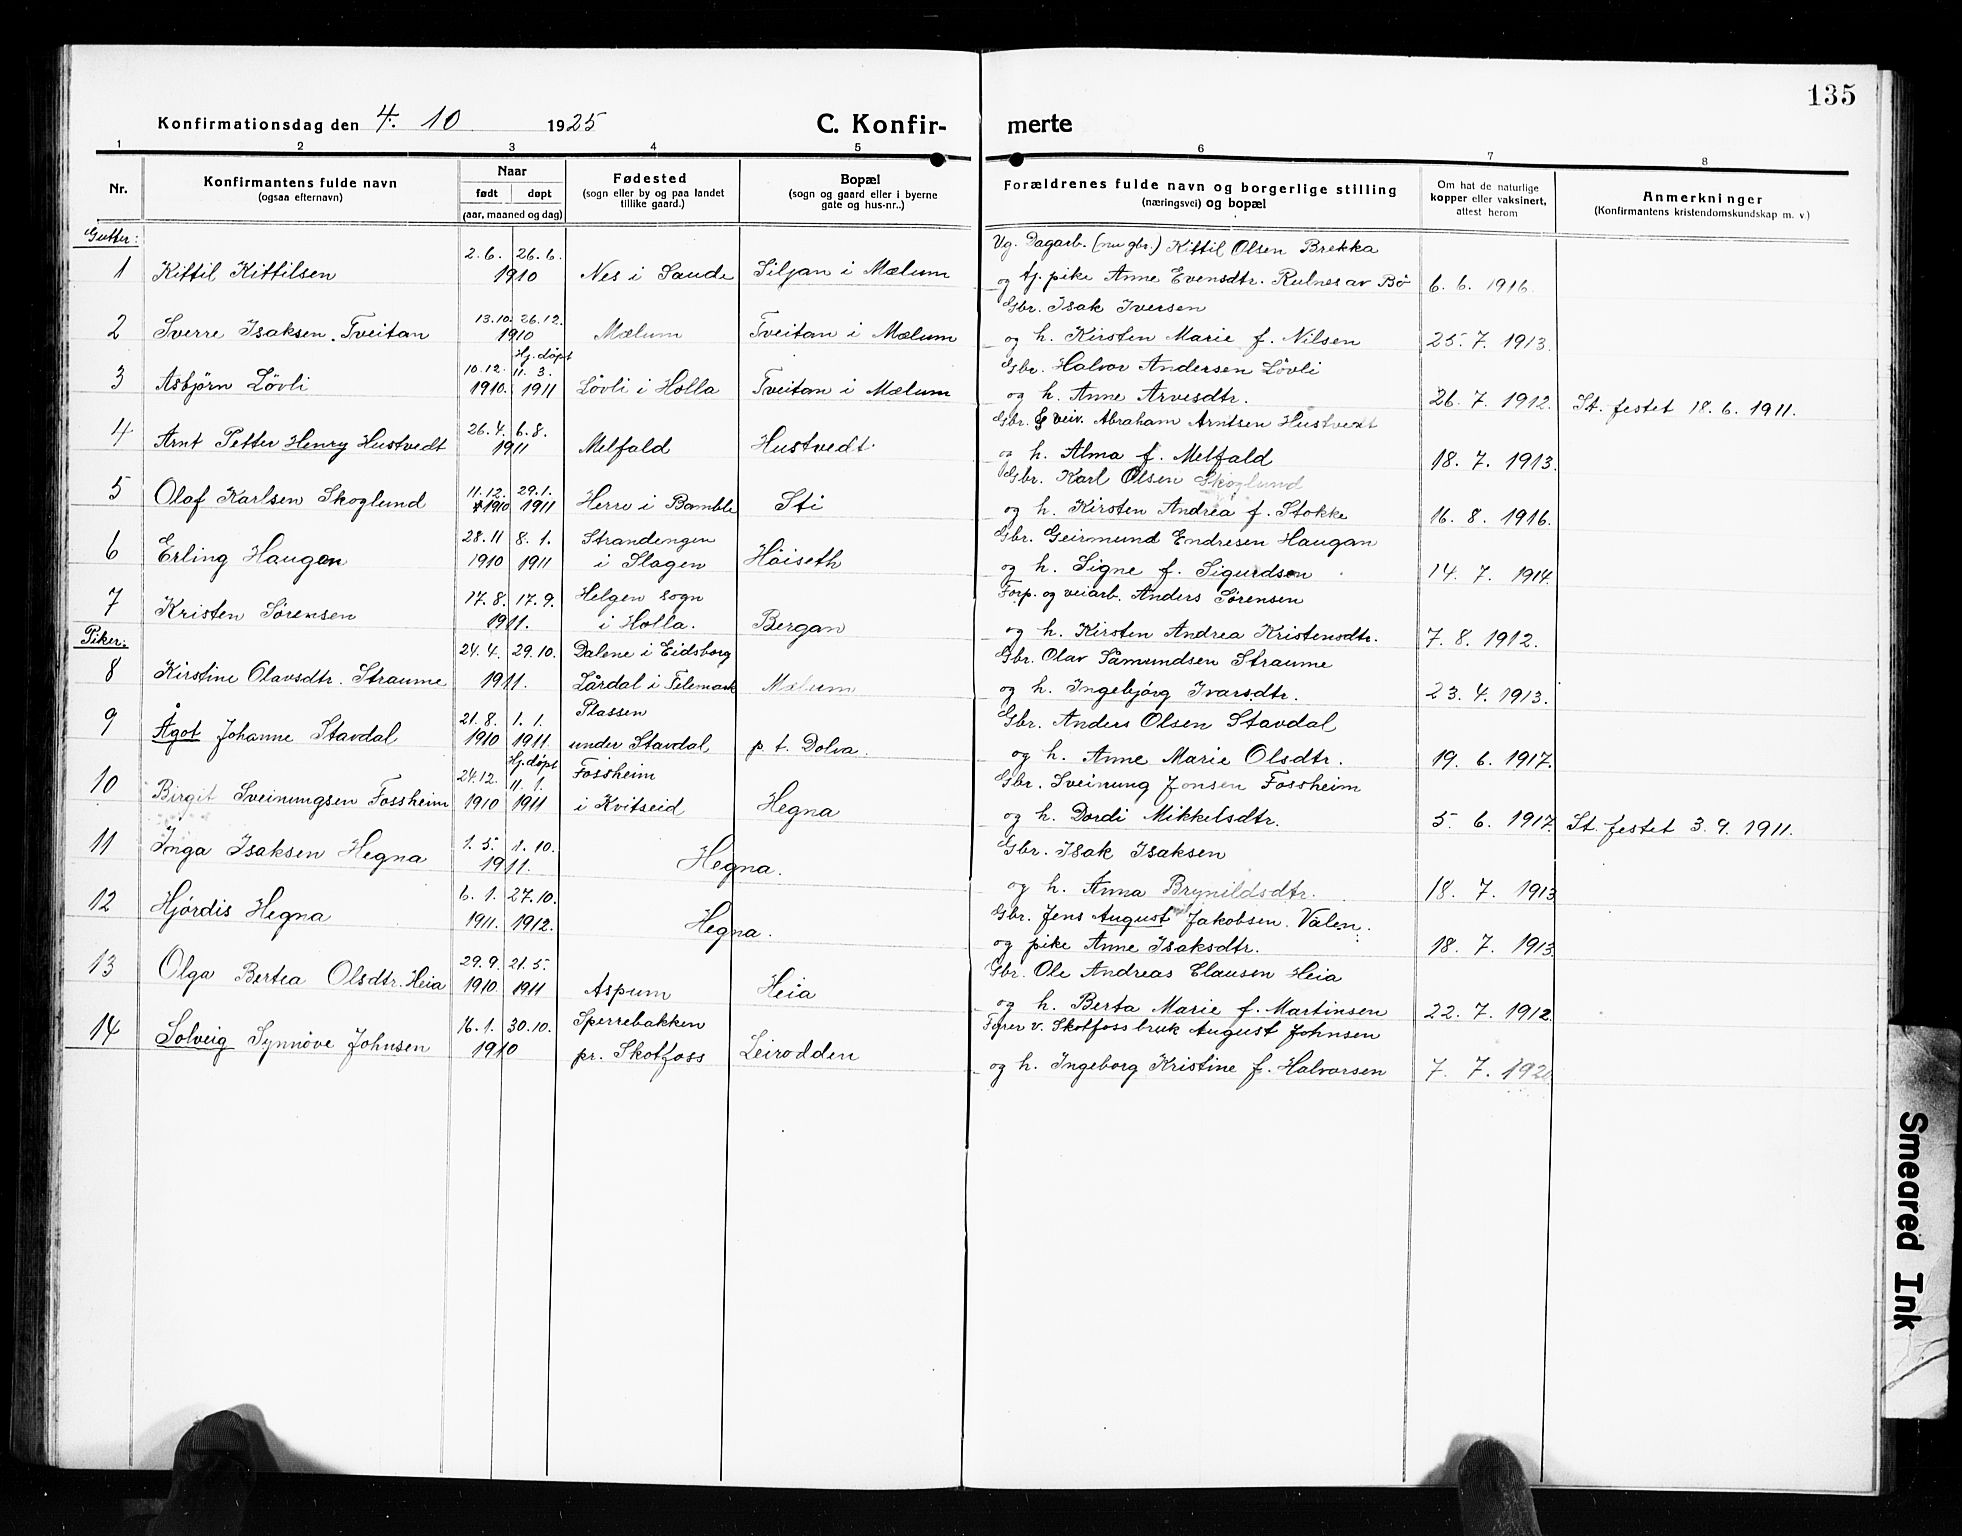 135
Konfirmationsdag den 4. 10 1925
C. Konfir- merte
1 2 3 4 5 6 7 8
Nr.
Konfirmantens fulde navn
(ogsaa efternavn)
Naar
født døpt
(aar, maaned og dag)
Fødested
(sogn eller by og paa landet
tillike gaard.)
Bopæl
(sogn og gaard eller i byerne
gate og hus-nr..)
Forældrenes fulde navn og borgerlige stilling
(næringsvei) og bopæl
Om hat de naturlige
kopper eller vaksinert,
attest herom
Anmerkninger
(Konfirmantens kristendomskundskap m. v.)
Gutter:
2. 6. 26. 6. Ug. Dagarb. (nu gbr.) Kittil Olsen Brekka
1 Kittil Kittilsen 1910 Nes i Saude Siljan i Mælum og tj. pike Anne Evensdtr. Rulnes av Bø 6. 6. 1916.
13.10. 26.12. Gbr. Isak Iversen
2 Sverre Isaksen Tveitan 1910 Mælum Tveitan i Mælum og h. Kirsten Marie f. Nilsen 25. 7. 1913.
Hj. døpt
10.12. 11. 3. Gbr. Halvor Andersen Løvli
3 Asbjørn Løvli 1910. 1911 Løvli i Holla Tveitan i Mælum og h. Anne Arvesdtr. 26. 7. 1912. St. festet 18. 6. 1911.
26. 4. 6. 8. Gbr. & veiv. Abraham Arntsen Hustvedt
4 Arnt Petter Henry Hustvedt 1911 Melfald Hustvedt og h. Alma f. Melfald 18. 7. 1913.
11.12. 29. 1. Gbr. Karl Olsen Skoglund
5 Olaf Karlsen Skoglund 1910 1911 Herre i Bamble Sti og h. Kirsten Andrea f. Stokke 16. 8. 1916.
28. 11 8. 1. Strandengen Gbr. Geirmund Endresen Haugan
6 Erling Haugen 1910 1911 i Slagen Høiseth og h. Signe f. Sigurdson 14. 7. 1914.
17. 8. 17. 9. Helgen sogn Forp. og veiarb. Anders Sørensen
7 Kristen Sørensen 1911. i Holla. Bergan og h. Kirsten Andrea Kristensdtr. 7. 8. 1912.
Piker:
24. 4. 29. 10. Dalene i Eidsborg Gbr. Olav Såmundsen Straume
8 Kirstine Olavsdtr. Straume 1911. Lårdal i Telemark Mælum og h. Ingebjørg Ivarsdtr. 23. 4. 1913.
21. 8. 1. 1. Plassen Gbr. Anders Olsen Stavdal
9 Ågot Johanne Stavdal 1910 1911. under Stavdal p. t. Dolva. og h. Anne Marie Olsdtr. 19. 6. 1917.
Hj. døpt
24.12. 11. 1. Fossheim Gbr. Sveinung Jonsen Fossheim
10 Birgit Sveinungsen Fossheim 1910 1911 i Kvitseid Hegna og h. Dordi Mikkelsdtr. 5. 6. 1917. St. festet 3. 9. 1911.
1. 5. 1. 10. Gbr. Isak Isaksen
11 Inga Isaksen Hegna 1911. Hegna. og h. Anna Brynildsdtr. 18. 7. 1913
6. 1. 27. 10. Gbr. Jens August Jakobsen Valen.
12 Hjørdis Hegna 1911. 1912. Hegna. og pike Anne Isaksdtr. 18. 7. 1913.
29. 9. 21. 5. Gbr. Ole Andreas Clausen Heia
13 Olga Bertea Olsdtr. Heia 1910 1911 Aspum Heia og h. Berta Marie f. Martinsen 22. 7. 1912.
16. 1. 30. 10. Sperrebakken Fyrer v. Skotfoss bruk August Johnsen
14 Solveig Synnøve Johnsen 1910 pr. Skotfoss Leirodden og h. Ingeborg Kristine f. Halvorsen 7. 7. 192
Smeared Ink